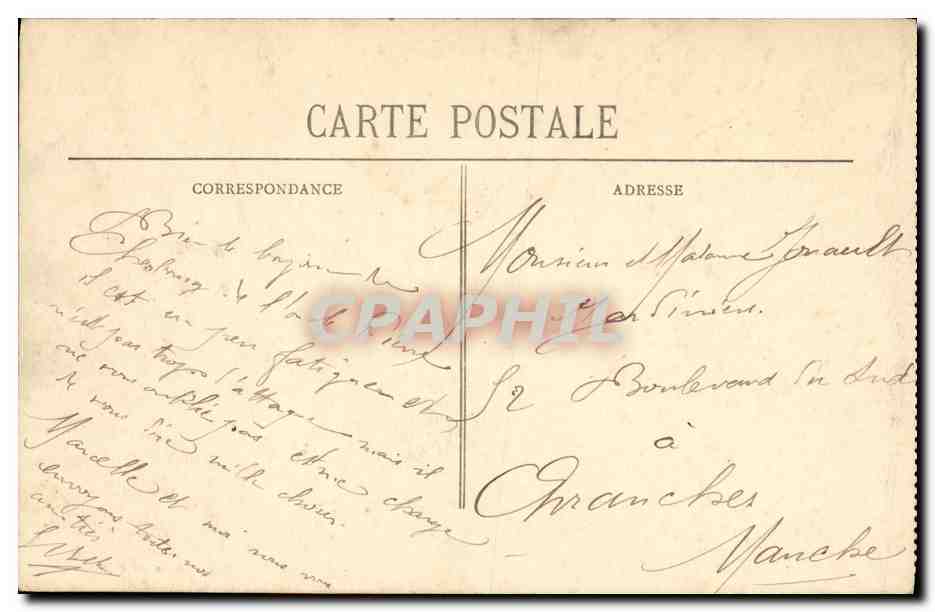 CARTE POSTALE
CORRESPONDANCE
Bien le bonjour de
Cherbourg. de l'oncle
il est un peu fatigué et
n'est pas trop mais il
ne vous oublie pas et me charge
de vous dire mille choses.
Marcelle et moi nous vous
envoyons toutes nos
amitiés
ADRESSE
Monsieur et Madame
Jardinier.
52 Boulevard du Sud
à
Avranches
Manche
CPAPHIL